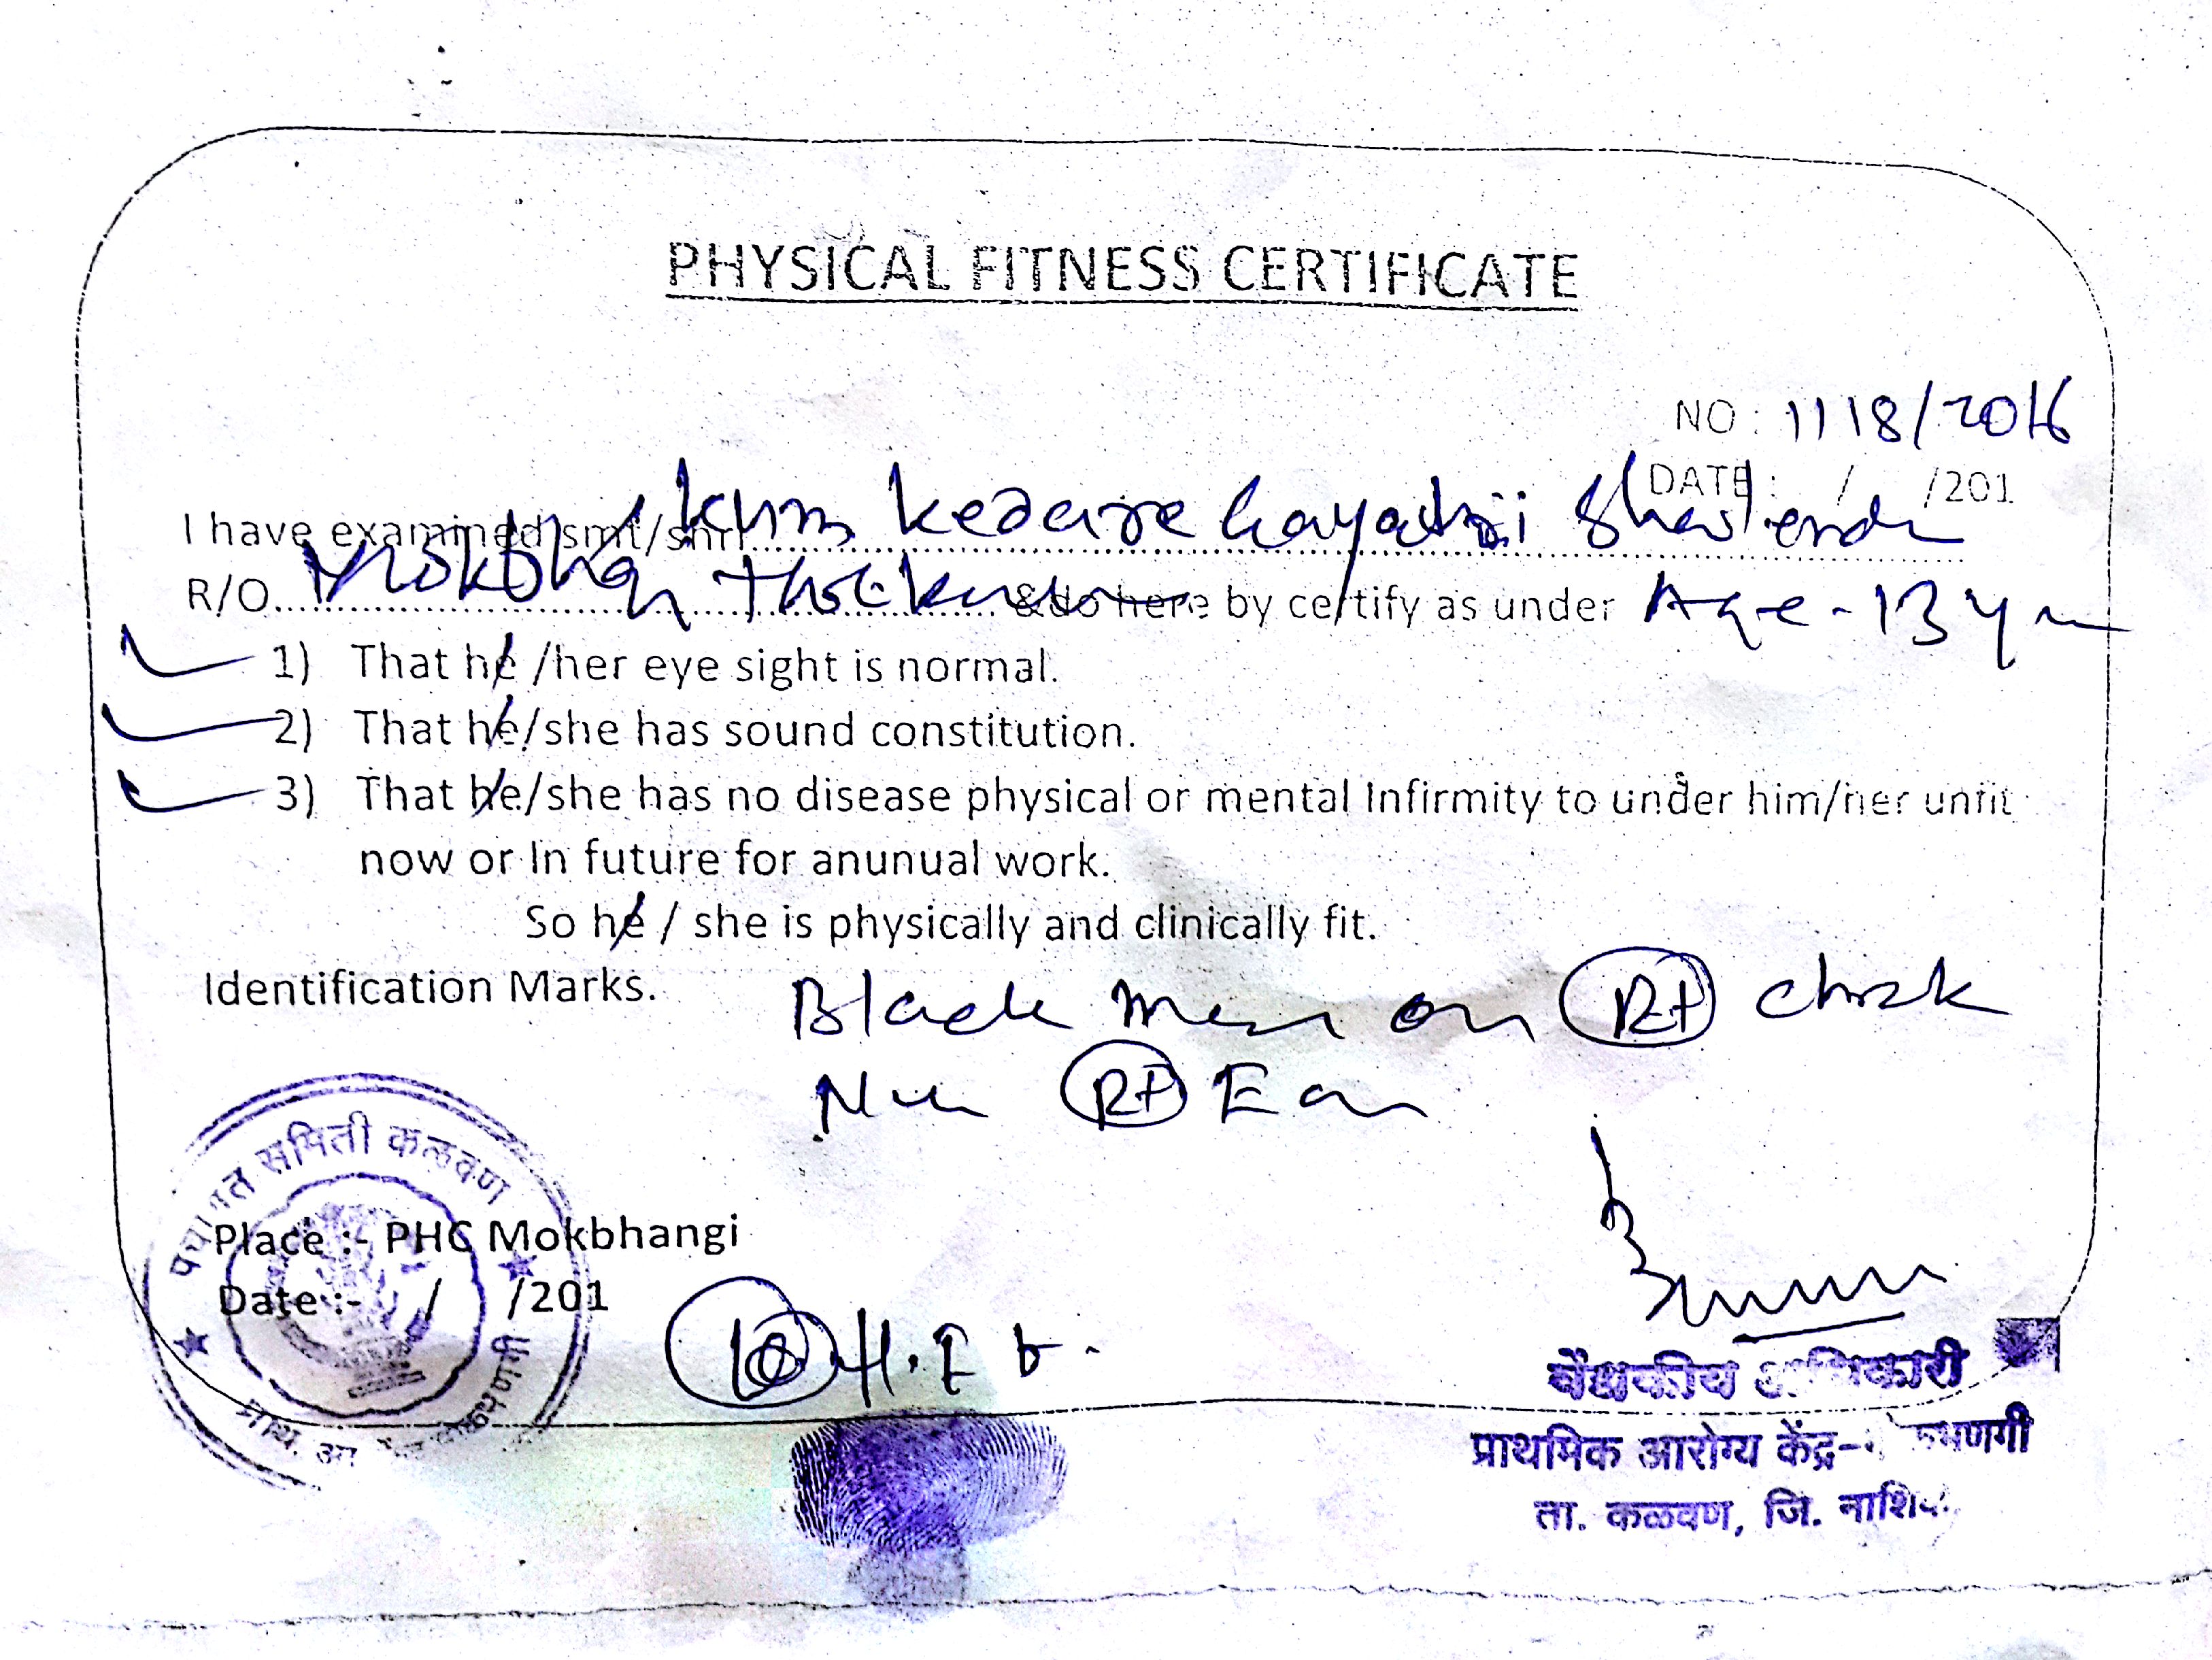 PHYSICAL FITNESS CERTIFICATE
NO : 1118/2016
DATE : / /201
I have examined smt/shri kum kedare Gayatri
R/O & do here by certify as under Age - 13 yr
1) That he /her eye sight is normal.
2) That he/she has sound constitution.
3) That he/she has no disease physical or mental Infirmity to under him/her unfit
now or In future for anunual work.
So he / she is physically and clinically fit.
Identification Marks. Black on Rt cheek
Rt Ear
पंचायत समिती कळवण
Place :- PHC Mokbhangi
Date :- / /201
प्राथ.
वैद्यकीय अधिकारी
प्राथमिक आरोग्य केंद्र-
ता. कळवण, जि. नाशिक